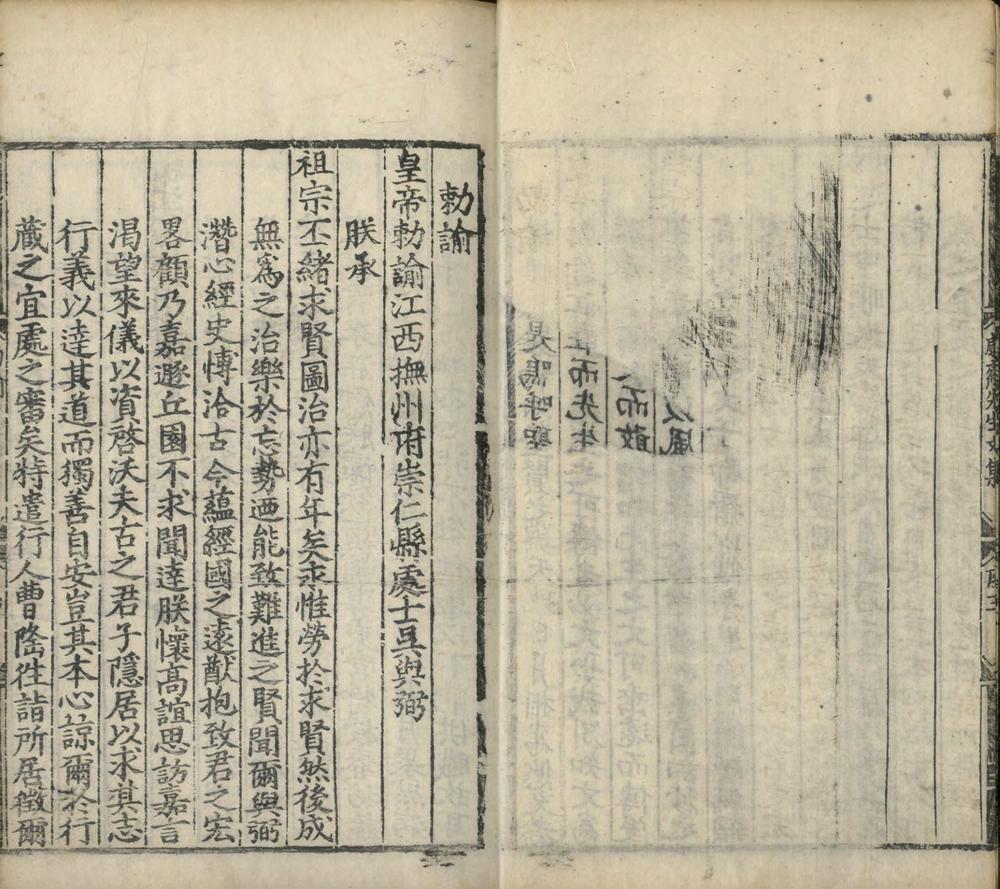 康齋先生文集
勅諭
皇帝勅諭江西撫州府崇仁縣處士吳與弼
朕承
祖宗丕緒求賢圖治亦有年矣永惟勞於求賢然後成
無爲之治樂於忘勢廼能致難進之賢聞爾與弼
濳心經史愽洽古今蘊經國之遠猷抱致君之宏
畧顧乃嘉遯丘園不求聞達朕懷高誼思訪嘉言
渴望來儀以資啓沃夫古之君子隱居以求其志
行義以達其道而獨善自安豈其本心諒爾於行
藏之宜處之審矣特遣行人曹隆徃詣所居徵爾